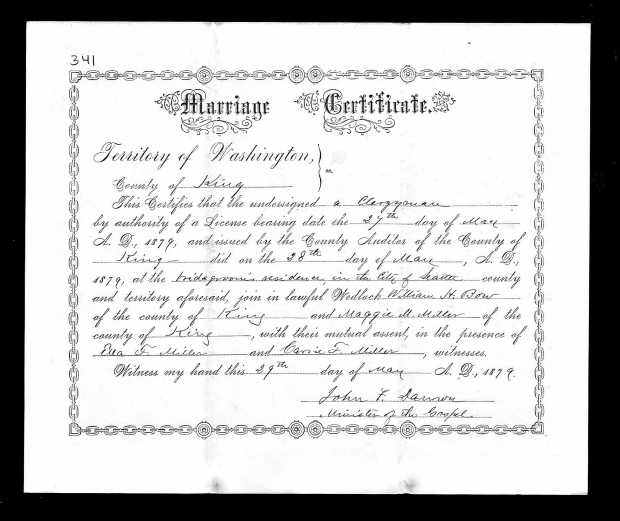 341
Marriage Certificate.
Territory of Washington,
County of King ss
This Certifies that the undersigned a Clergyman
by authority of a License bearing date the 27th day of May
A. D., 1879, and issued by the County Auditor of the County of
King did on the 28th day of May, A. D.,
1879, at the bridegroom's residence in the City of Seattle county
and territory aforesaid, join in lawful Wedlock William H. Bow
of the county of King and Maggie M. Miller of the
county of King, with their mutual assent, in the presence of
Ella F. Miller and Carrie F. Miller, witnesses.
Witness my hand this 29th day of May A. D., 1879.
John F. Damon
Minister of the Gospel.